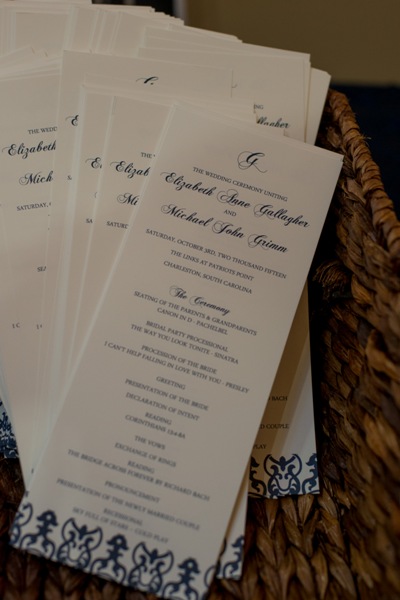 G
THE WEDDING CEREMONY UNITING
Elizabeth Anne Gallagher
AND
Michael John Grimm
SATURDAY, OCTOBER 3RD, TWO THOUSAND FIFTEEN
THE LINKS AT PATRIOTS POINT
CHARLESTON, SOUTH CAROLINA
The Ceremony
SEATING OF THE PARENTS & GRANDPARENTS
CANON IN D - PACHELBEL
BRIDAL PARTY PROCESSIONAL
THE WAY YOU LOOK TONITE - SINATRA
PROCESSION OF THE BRIDE
I CAN'T HELP FALLING IN LOVE WITH YOU - PRESLEY
GREETING
PRESENTATION OF THE BRIDE
DECLARATION OF INTENT
READING
CORINTHIANS 13:4-8A
THE VOWS
EXCHANGE OF RINGS
READING
THE BRIDGE ACROSS FOREVER BY RICHARD BACH
PRONOUNCEMENT
PRESENTATION OF THE NEWLY MARRIED COUPLE
RECESSIONAL
SKY FULL OF STARS - COLD PLAY
THE WED
Elizabeth
Mich
SATURDAY,
SEA
I C
E
M
SATU
THE WE
Elizabe
Mic
SATURDA
ING
llagher
BACH
D COUPLE
PLAY